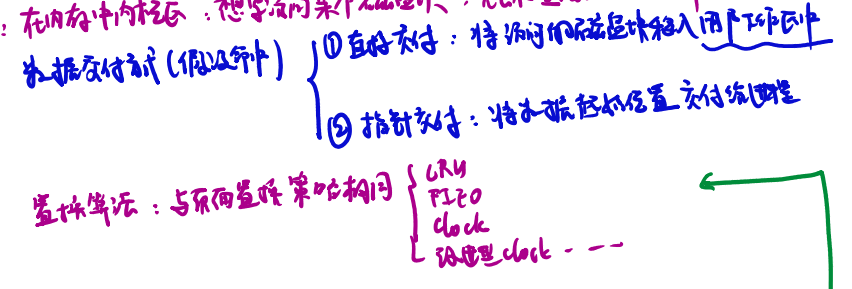 ：在内存中的
数据交付方式(假设命中)
①直接交付：将访问的磁盘块移入用户工作区中
②指针交付：将数据 位置交付给进程
置换算法：与页面置换策略相同
LRU
FIFO
clock
改进型clock . - —